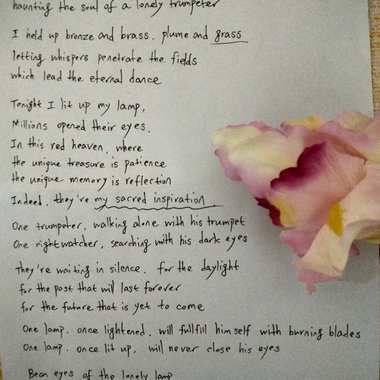 haunting the soul of a lonely trumpeter
I held up bronze and brass. plume and grass
letting whispers penetrate the fields
which lead the eternal dance
Tonight I lit up my lamp,
Millions opened their eyes.
In this red heaven, where
the unique treasure is patience
the unique memory is reflection
Indeed, they're my sacred inspiration
One trumpeter, walking alone with his trumpet
One nightwatcher, searching with his dark eyes
They're waiting in silence. for the daylight
for the past that will last forever
for the future that is yet to come
One lamp. once lightened. will fullfill himself with burning blades
One lamp. once lit up. will never close his eyes
eyes of the lonely lamp